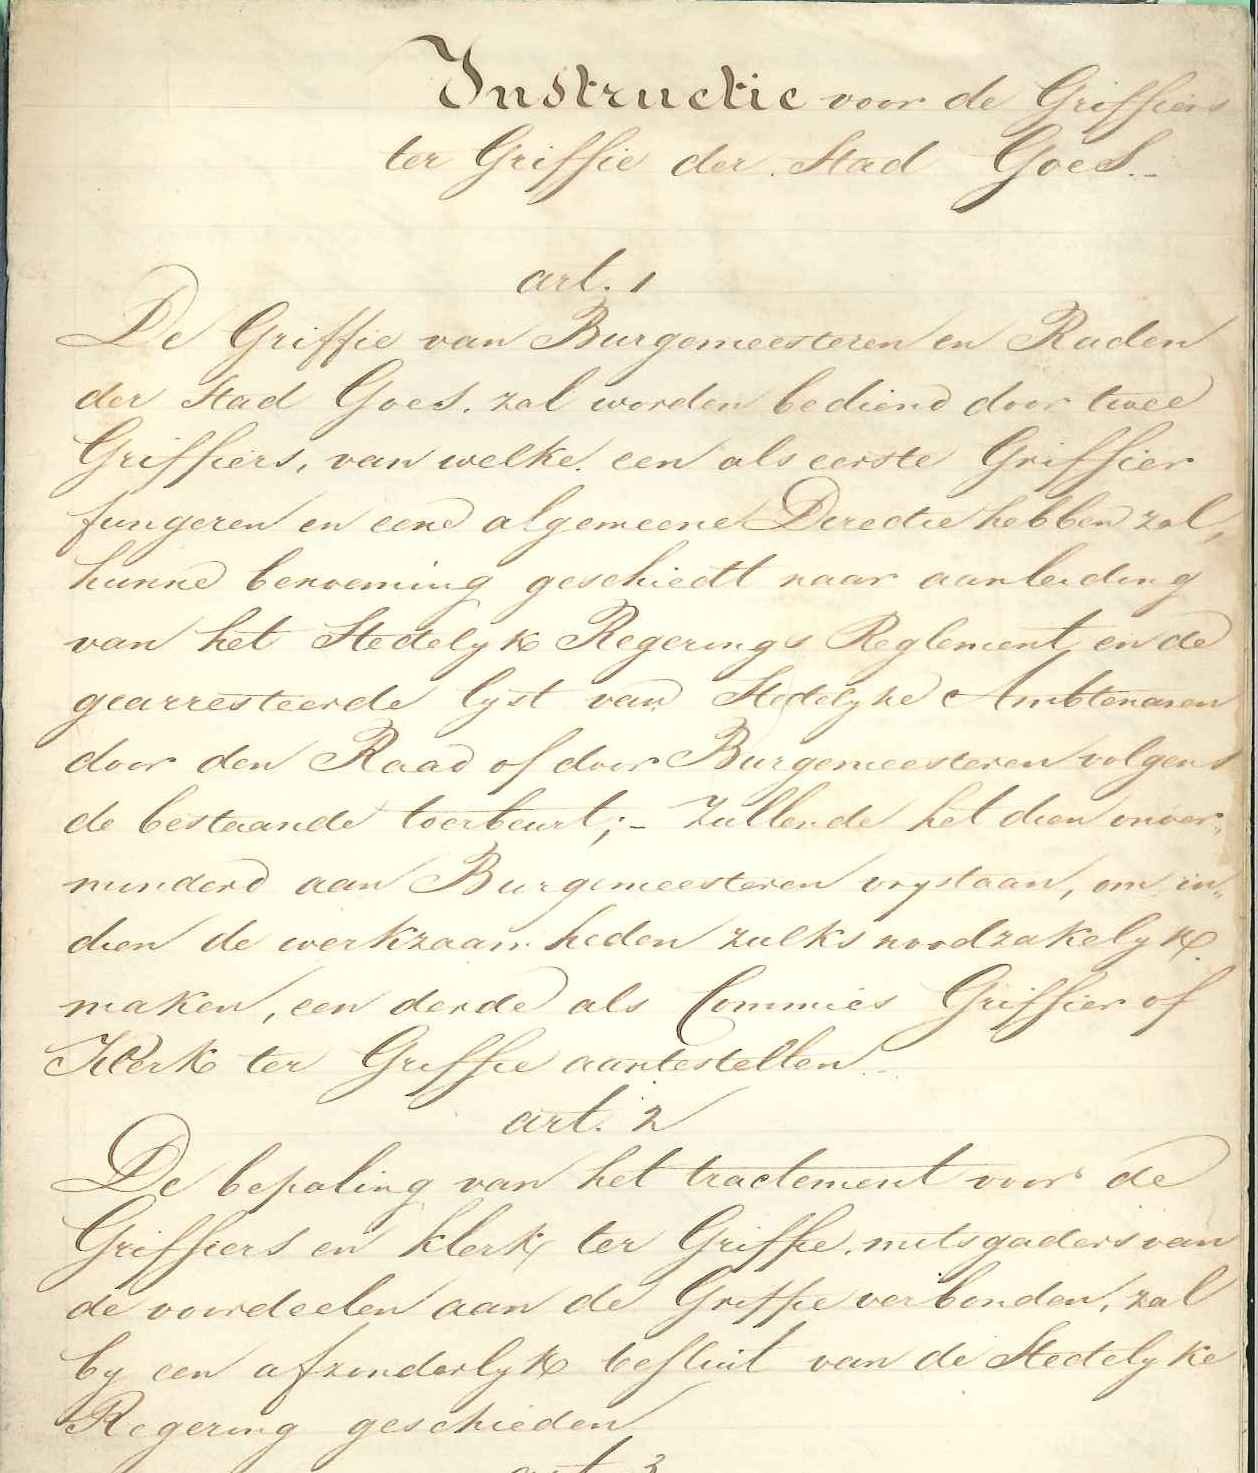 Instructie voor de Griffiers
ter Griffie der Stad Goes.-
art. 1
De Griffie van Burgemeesteren en Raden
der Stad Goes. zal worden bediend door twee
Griffiers, van welke een als eerste Griffier
fungeren en eene algemeene Directie hebben zal,
hunne benoeming geschiedt naar aanleiding
van het Stedelyk Regerings Reglement en de
gearresteerde lyst van Stedelyke Ambtenaren
door den Raad of door Burgemeesteren volgens
de bestaande toerbeurt;- Zullende het dien onver„
minderd aan Burgemeesteren vrystaan, om in„
dien de werkzaamheden zulks noodzakelyk
maken, een derde als Commies Griffier of
Klerk ter Griffie aantestellen.-
art. 2
De bepaling van het tractement voor de
Griffiers en klerk ter Griffie, mitsgaders van
de voordeelen aan de Griffie verbonden, zal
by een afzonderlyk besluit van de Stedelyke
Regering geschieden
art 3